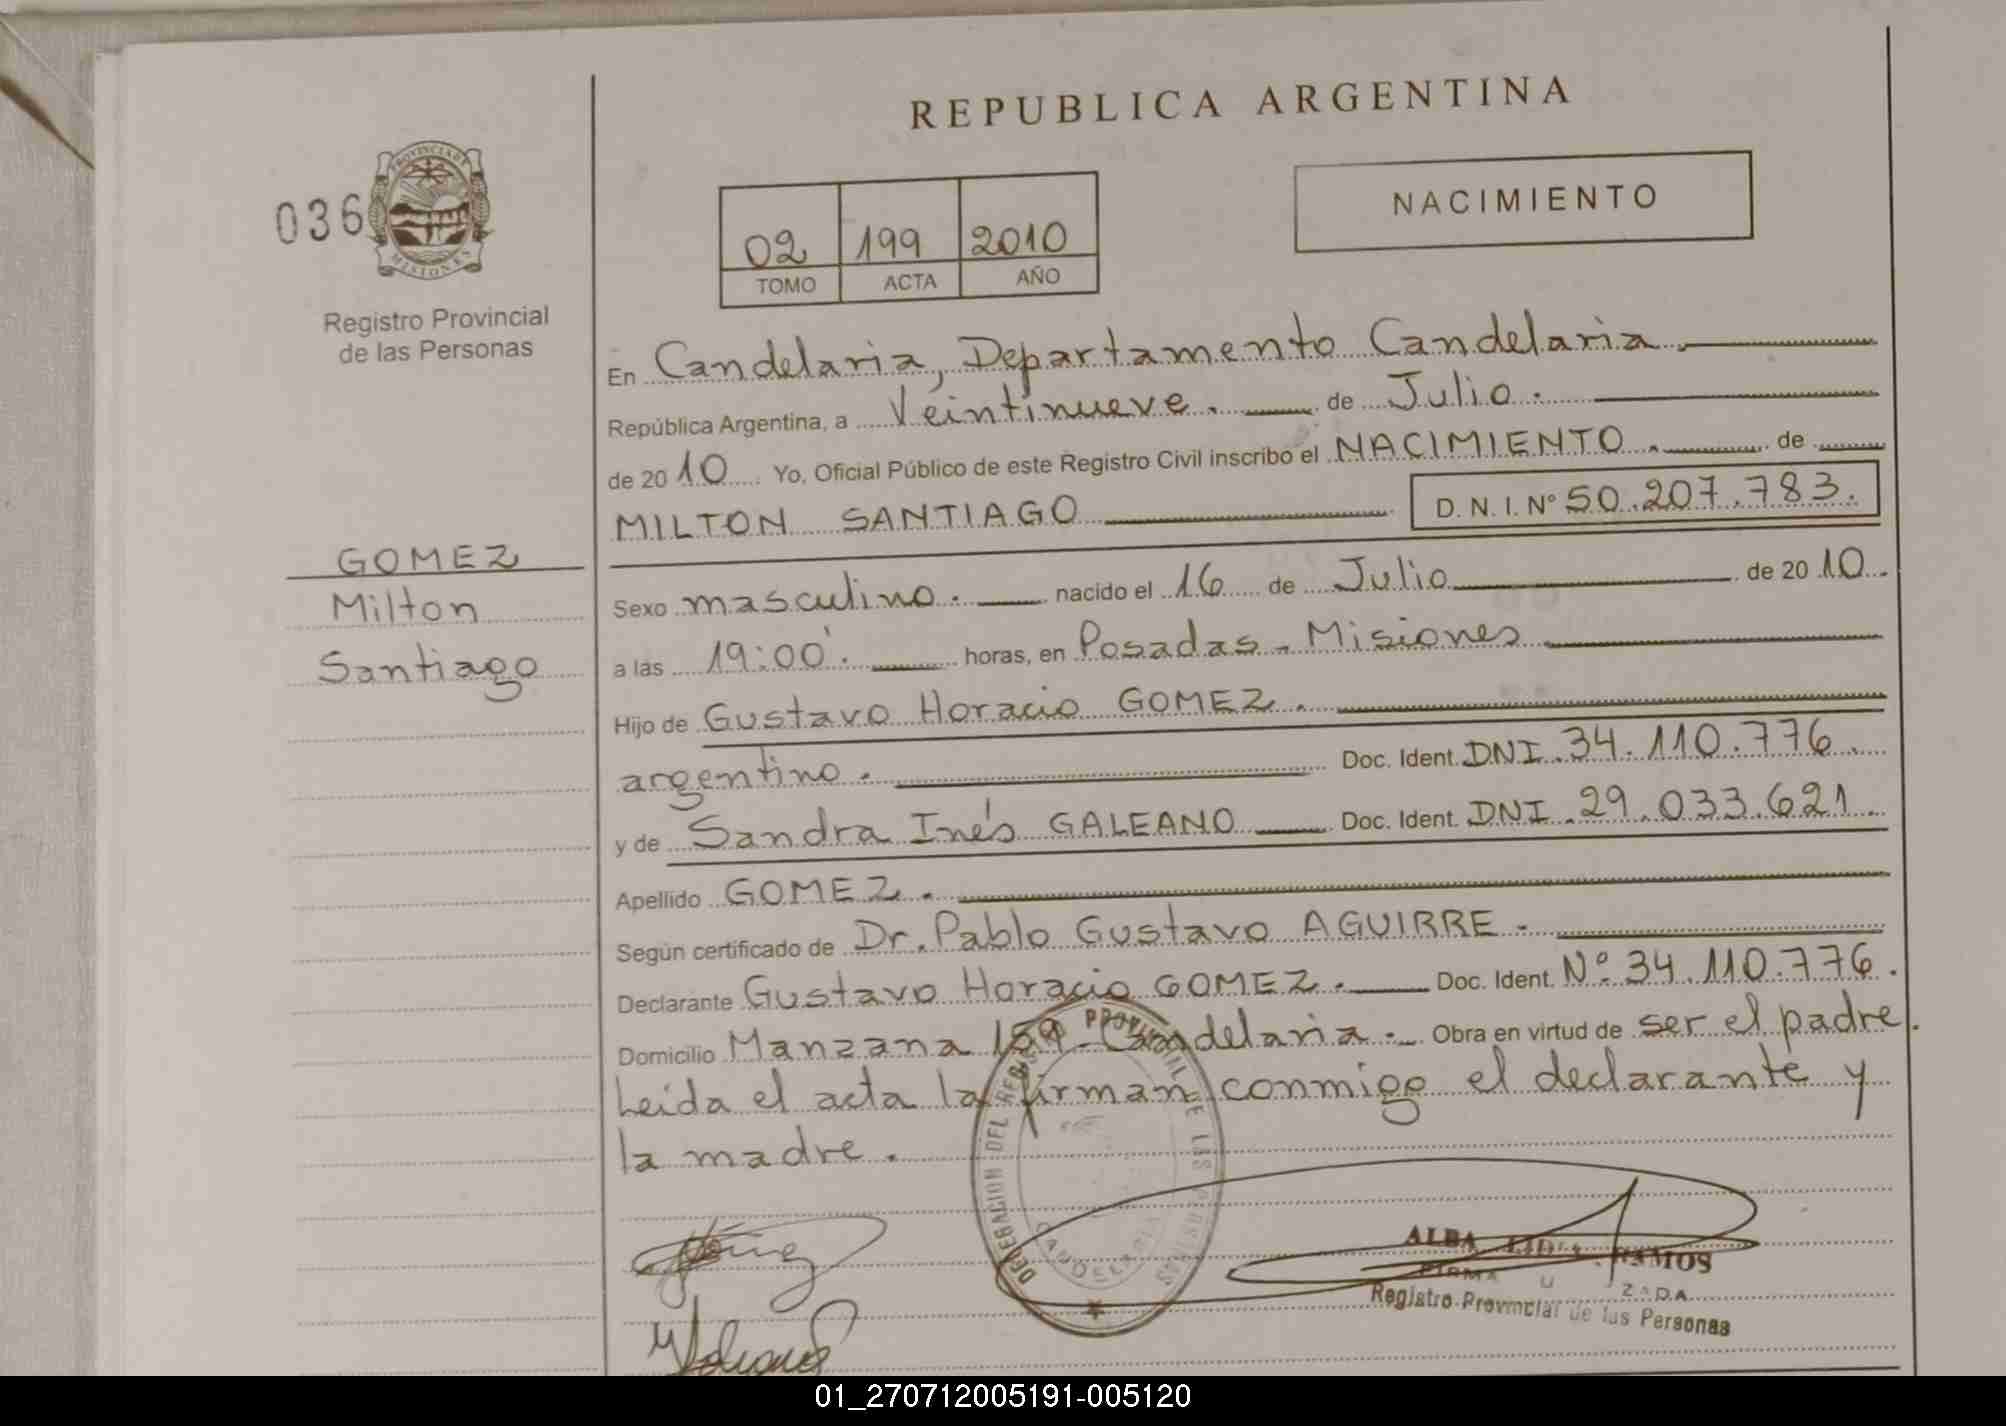 REPUBLICA ARGENTINA
036
PROVINCIA DE
MISIONES
Registro Provincial
de las Personas
02 199 2010
TOMO ACTA AÑO
NACIMIENTO
En Candelaria, Departamento Candelaria.
República Argentina, a Veintinueve. de Julio.
de 2010. Yo, Oficial Público de este Registro Civil inscribo el NACIMIENTO. de
MILTON SANTIAGO D.N.I. Nº 50.207.783.
GOMEZ
Milton
Santiago
Sexo masculino. nacido el 16 de Julio de 2010.
a las 19:00'. horas, en Posadas - Misiones
Hijo de Gustavo Horacio GOMEZ.
argentino. Doc. Ident. DNI. 34.110.776.
y de Sandra Inés GALEANO Doc. Ident. DNI. 29.033.621.
Apellido GOMEZ.
Según certificado de Dr. Pablo Gustavo AGUIRRE.
Declarante Gustavo Horacio GOMEZ. Doc. Ident. Nº 34.110.776.
Domicilio Manzana 159 - Candelaria. Obra en virtud de ser el padre.
Leída el acta la firman conmigo el declarante y
la madre.
DELEGACION DEL REGISTRO PROVINCIAL DE LAS PERSONAS
CANDELARIA
ALBA LIDIA RAMOS
FIRMA
Registro Provincial de las Personas
01_270712005191-005120